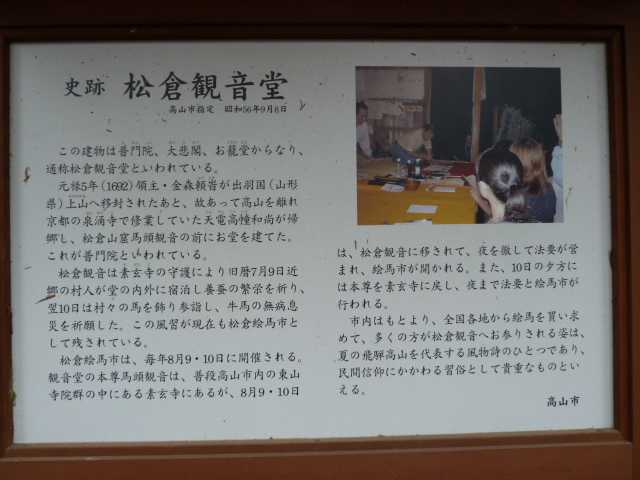 史跡 松倉観音堂
高山市指定 昭和56年9月8日
この建物は普門院、大悲閣、お籠堂からなり、
通称松倉観音堂といわれている。
元禄5年(1692)領主・金森頼旹が出羽国(山形
県)上山へ移封されたあと、故あって高山を離れ
京都の泉涌寺で修業していた天竜高幢和尚が帰
郷し、松倉山窟馬頭観音の前にお堂を建てた。
これが普門院といわれている。
松倉観音は素玄寺の守護により旧暦7月9日近
郷の村人が堂の内外に宿泊し養蚕の繁栄を祈り、
翌10日は村々の馬を飾り参詣し、牛馬の無病息
災を祈願した。この風習が現在も松倉絵馬市と
して残されている。
松倉絵馬市は、毎年8月9・10日に開催される。
観音堂の本尊馬頭観音は、普段高山市内の東山
寺院群の中にある素玄寺にあるが、8月9・10日
は、松倉観音に移されて、夜を徹して法要が営
まれ、絵馬市が開かれる。また、10日の夕方に
は本尊を素玄寺に戻し、夜まで法要と絵馬市が
行われる。
市内はもとより、全国各地から絵馬を買い求
めて、多くの方が松倉観音へお参りされる姿は、
夏の飛騨高山を代表する風物詩のひとつであり、
民間信仰にかかわる習俗として貴重なものとい
える。
高山市